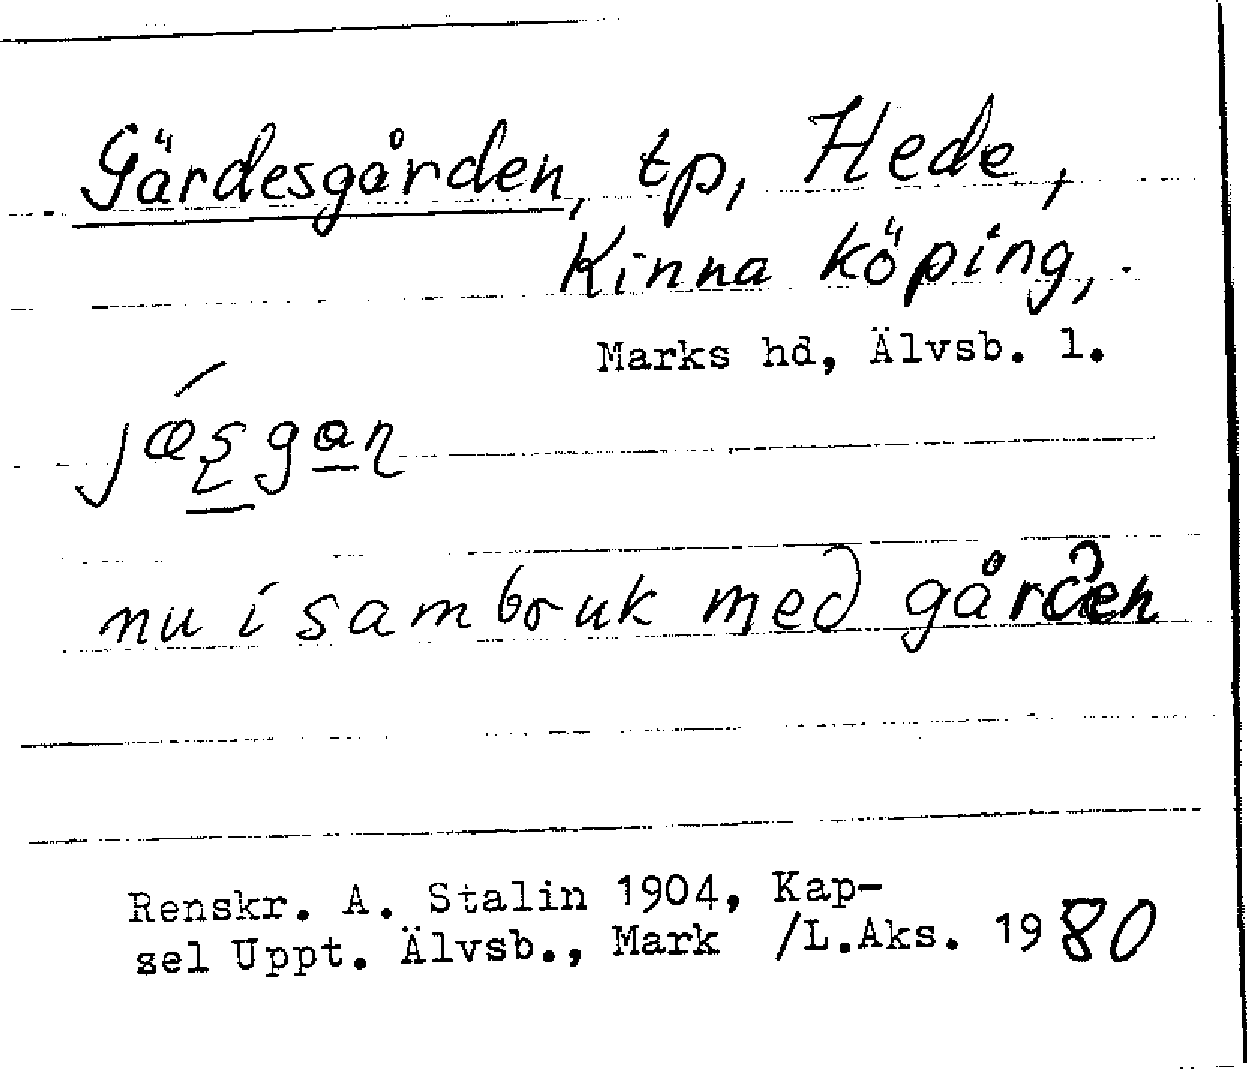 Gärdesgården, tp, Hede,
Kinna köping,
Marks hd, Älvsb. l.
nu i sambruk med gården
Renskr. A. Stalin 1904, Kap-
sel Uppt. Älvsb., Mark /L.Aks. 1980